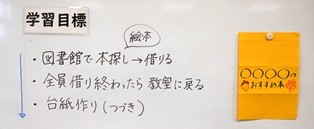 学習目標
絵本
・図書館で本探し→借りる
・全員借り終わったら教室に戻る
・台紙作り(つづき)
〇〇〇〇の
おすすめ本